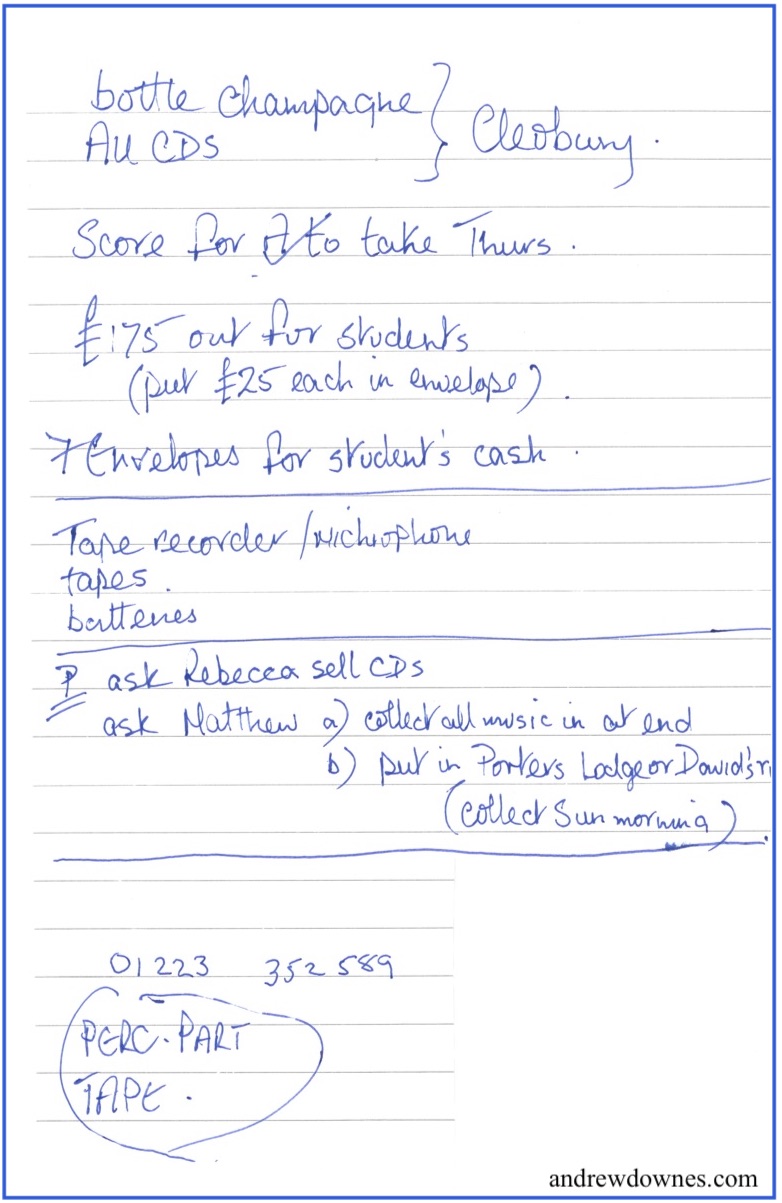 bottle champagne } Cleobury.
All CDs
Score for A to take Thurs.
£175 out for students
(put £25 each in envelope).
7 Envelopes for student's cash.
Tape recorder / Michrophone
tapes.
batteries
P ask Rebecca sell CDs
ask Matthew a) collect all music in at end
b) put in Porters Lodge or David's
(collect Sun morning).
01223 352 589
PERC. PART
TAPE.
andrewdownes.com